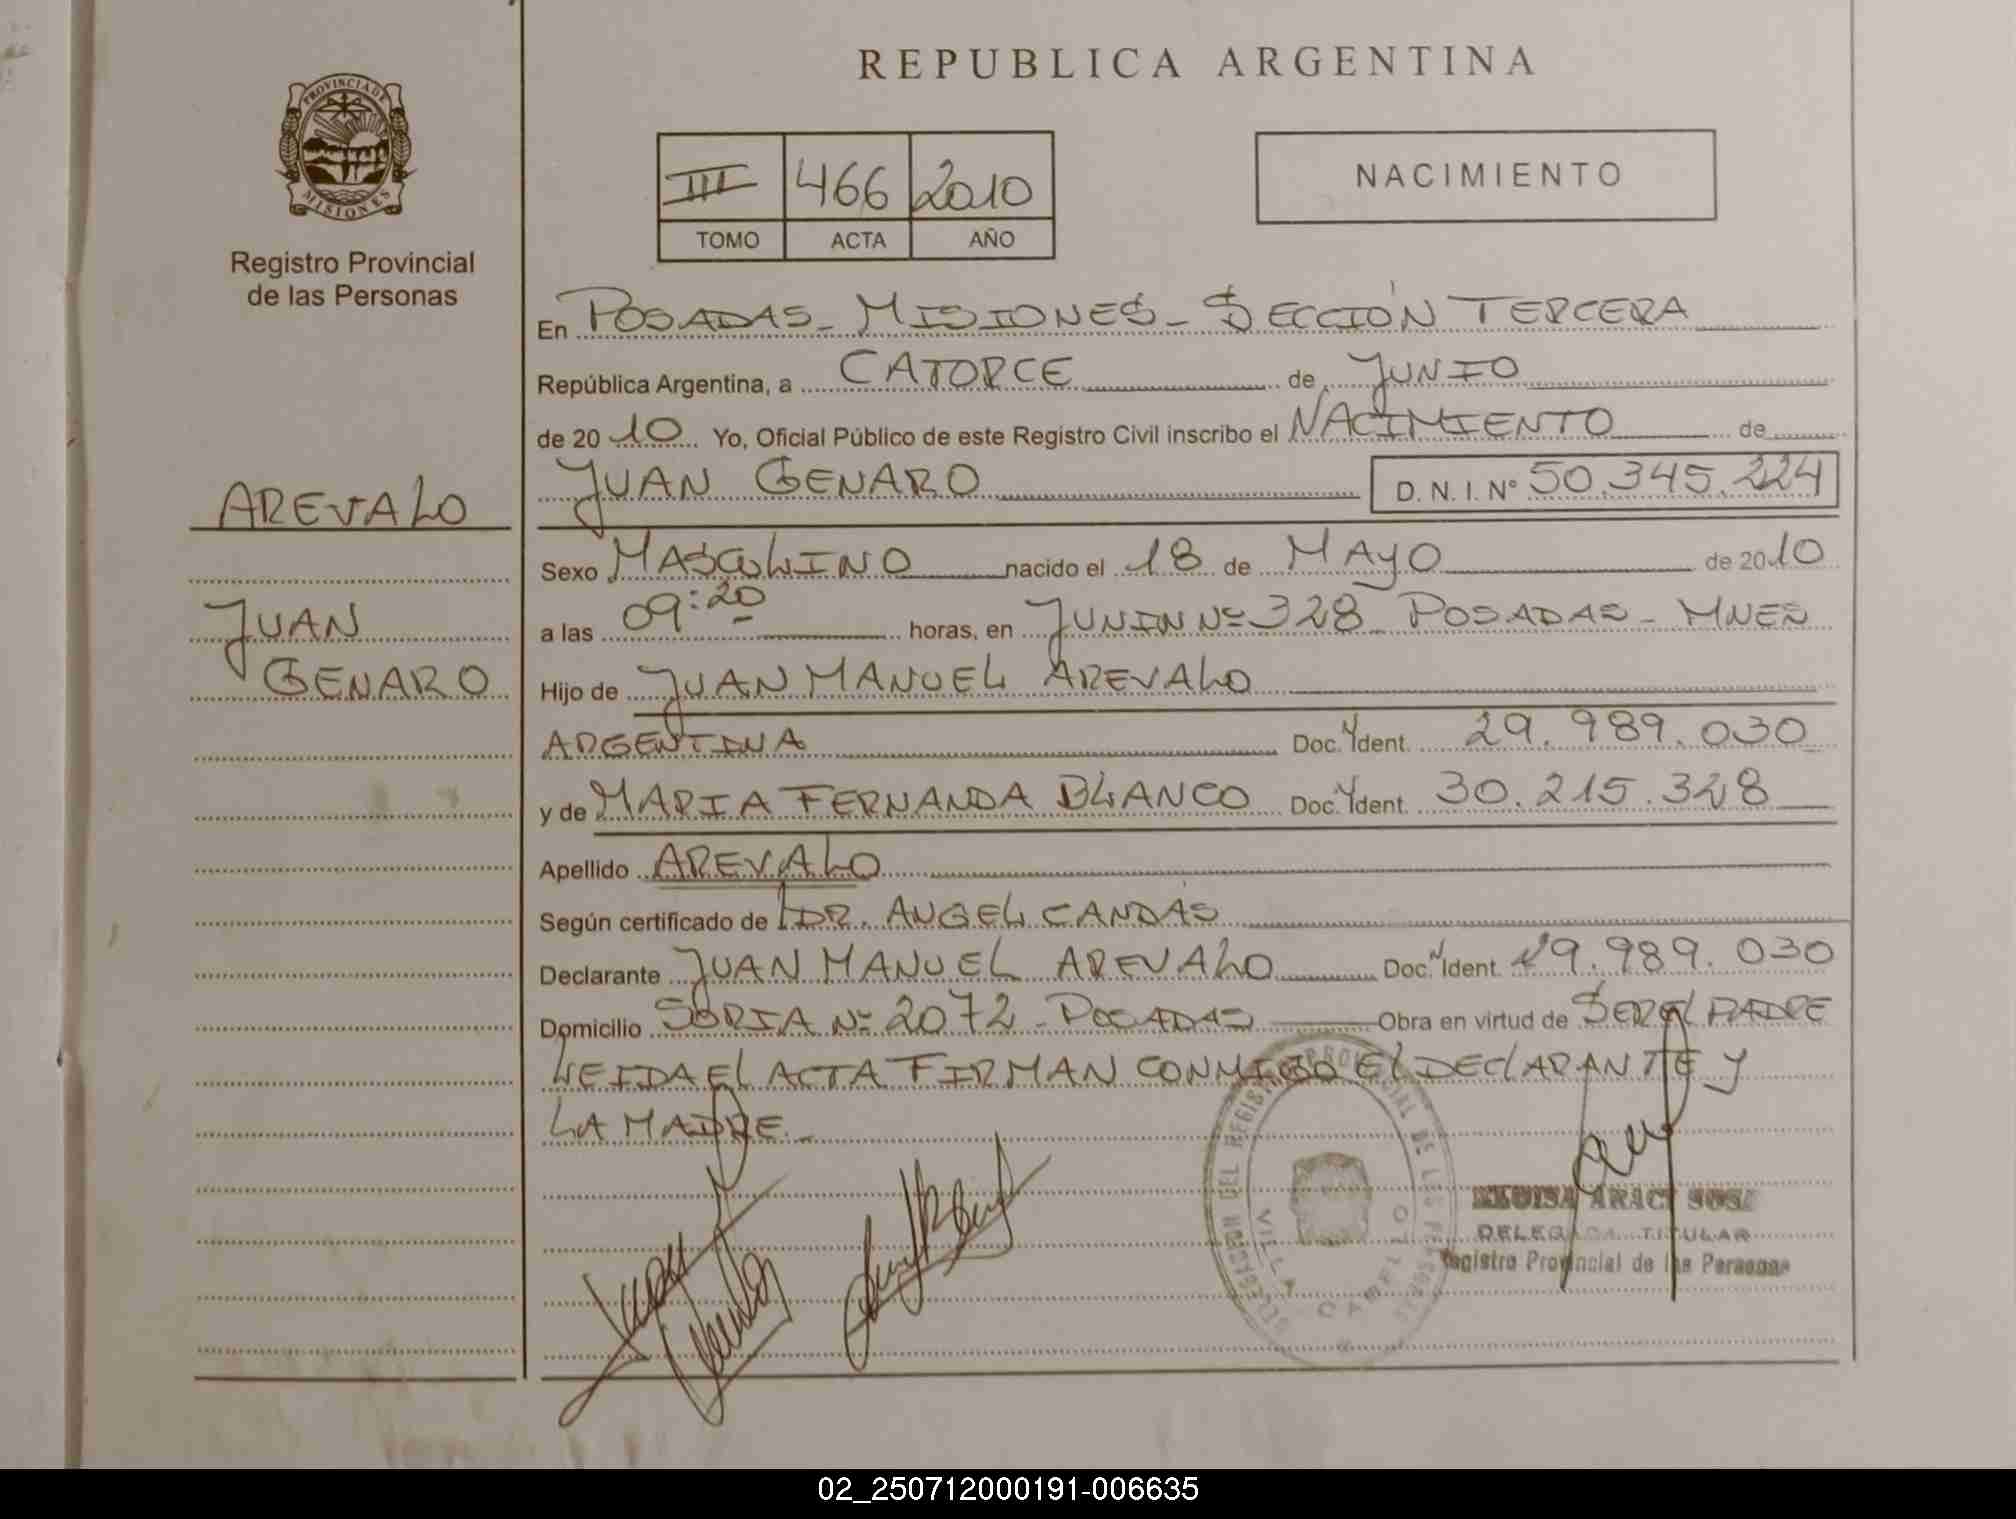 REPUBLICA ARGENTINA
PROVINCIA DE
MISIONES
Registro Provincial
de las Personas
III 466 2010
TOMO ACTA AÑO
NACIMIENTO
En POSADAS - MISIONES - SECCIÓN TERCERA
República Argentina, a CATORCE de JUNIO
de 2010 Yo, Oficial Público de este Registro Civil inscribo el NACIMIENTO de
JUAN GENARO D.N.I. Nº 50.345.224
AREVALO
JUAN
GENARO
Sexo MASCULINO nacido el 18 de MAYO de 2010
a las 09:20 horas, en JUNIN Nº 328 POSADAS - MNES
Hijo de JUAN MANUEL AREVALO
ARGENTINA Doc. Ident. 29.989.030
y de MARIA FERNANDA BLANCO Doc. Ident. 30.215.328
Apellido AREVALO
Según certificado de DR. ANGEL CANDAS
Declarante JUAN MANUEL AREVALO Doc. Ident. 29.989.030
Domicilio SORIA Nº 2072 - POSADAS Obra en virtud de SER EL PADRE
LEIDA EL ACTA FIRMAN CONMIGO EL DECLARANTE Y
LA MADRE -
DELEGACION DEL REGISTRO PROVINCIAL DE LAS
VILLA
ARACI SOSA
DELEGADA TITULAR
Registro Provincial de las Personas
02_250712000191-006635